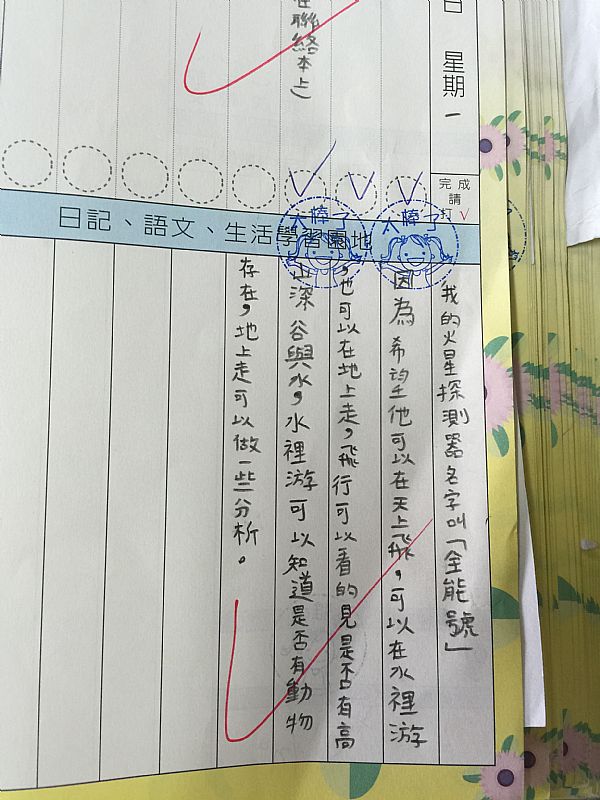 日 星期一
完成
請
打✓
在聯絡本上)
日記、語文、生活學習園地
太棒了
太棒了
我的火星探測器名字叫「全能號」
因為希望他可以在天上飛,可以在水裡游
,也可以在地上走,飛行可以看的見是否有高
山深谷與水,水裡游可以知道是否有動物
存在,地上走可以做一些分析。